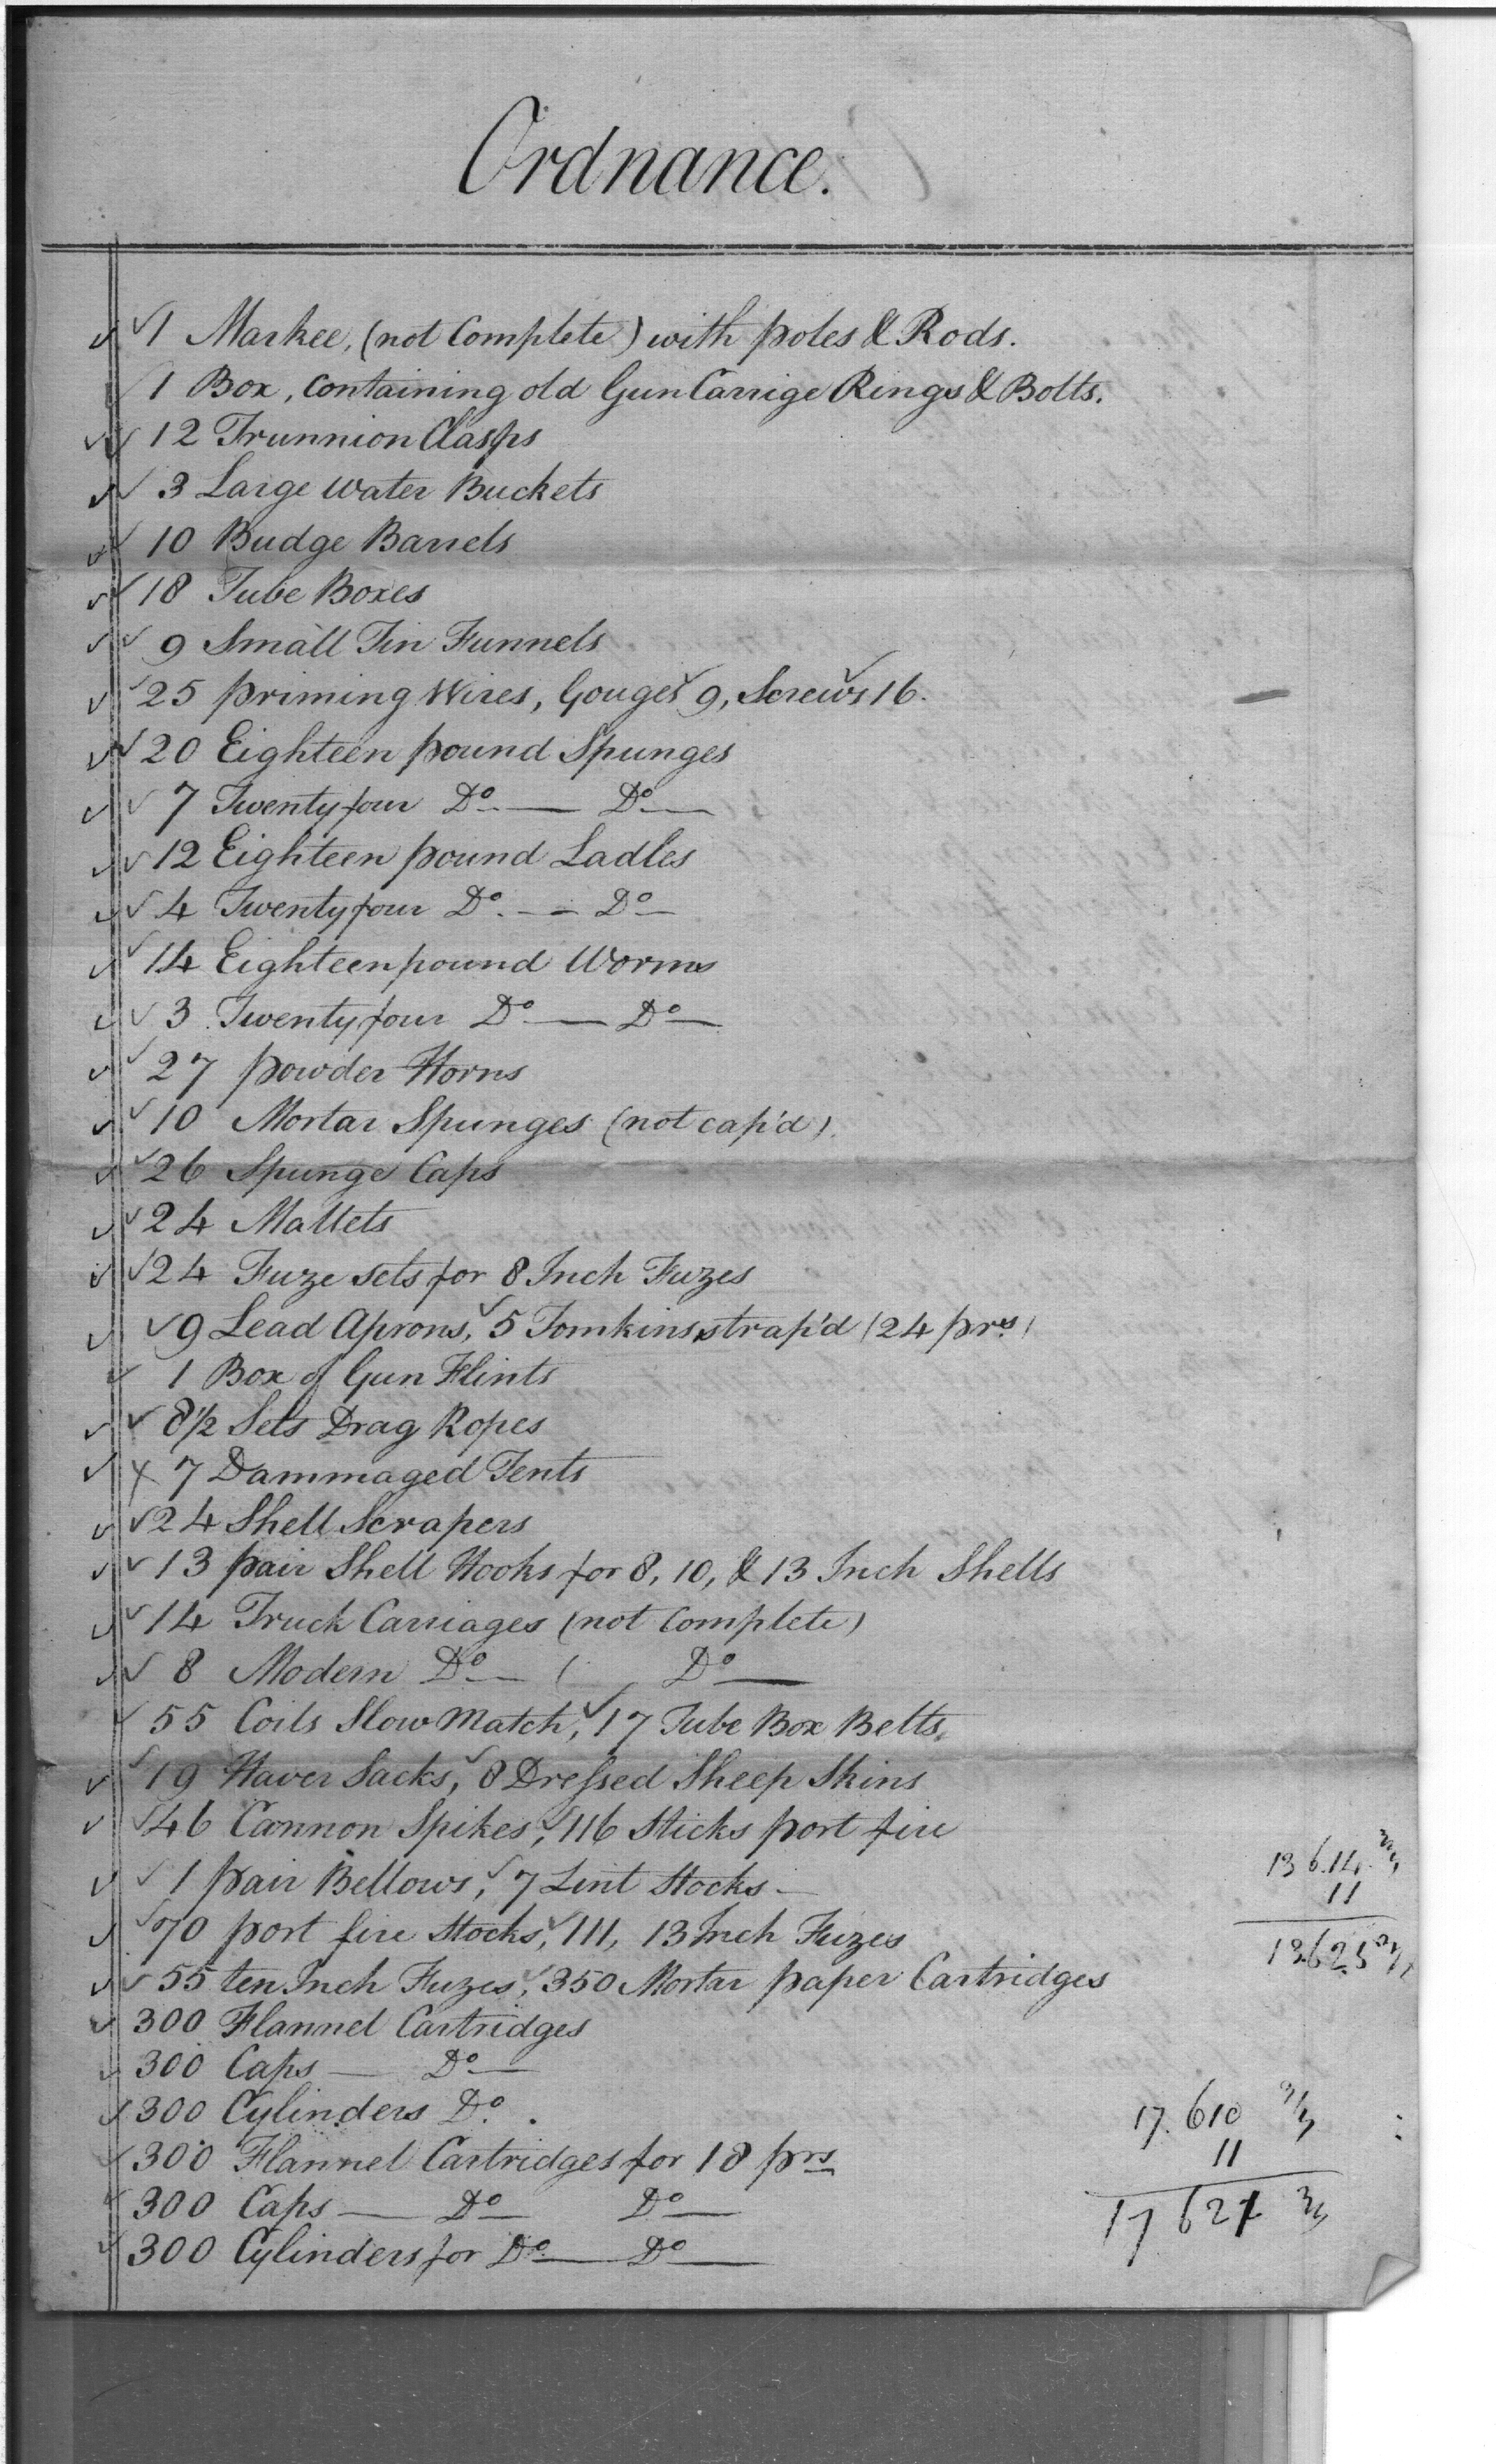 Ordnance.
1 Markee, (not Complete) with poles & Rods.
1 Box, Containing old Gun Carrige Rings & Bolts.
12 Trunnion Clasps
3 Large Water Buckets
10 Budge Barrels
18 Tube Boxes
9 Small Tin Funnels
25 priming Wires, Gouges 9, Screws 16.
20 Eighteen pound Spunges
7 Twenty four Do. — Do. —
12 Eighteen pound Ladles
4 Twenty four Do. — Do —
14 Eighteen pound Worms
3 Twenty four Do — Do —
27 powder Horns
10 Mortar Spunges (not cap'd).
26 Spunge Caps
24 Mallets
24 Fuze sets for 8 Inch Fuzes
9 Lead Aprons, 5 Tomkins strap'd (24 prs)
1 Box of Gun Flints
8 1/2 Sets Drag Ropes
7 Dammaged Tents
24 Shell Scrapers
13 pair Shell Hooks for 8, 10, & 13 Inch Shells
14 Truck Carriages (not Complete)
8 Modern Do — ( Do —
55 Coils Slow Match, 17 Tube Box Belts.
19 Haver Sacks, 8 Dressed Sheep Skins
46 Cannon Spikes, 116 Sticks port fire
1 pair Bellows, 7 Lint Stocks —
70 port fire Stocks, 111, 13 Inch Fuzes
55 ten Inch Fuzes, 350 Mortar paper Cartridges
300 Flannel Cartridges
300 Caps — Do —
300 Cylinders Do.
300 Flannel Cartridges for 18 prs
300 Caps — Do — Do —
300 Cylinders for Do. — Do —
13 6.14.
11
13625
17.610
11
17 621